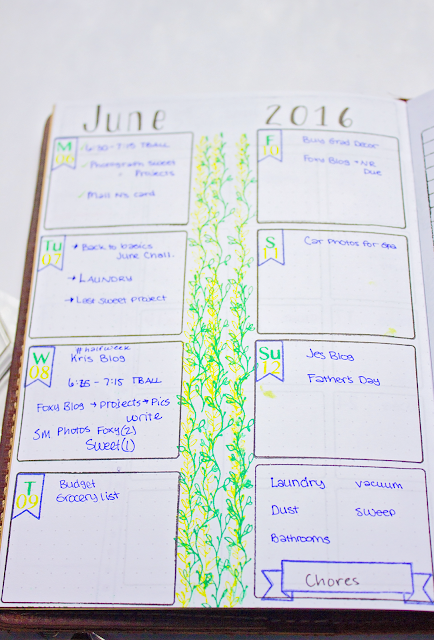 June
2016
M
06
6:30 - 7:15 TBALL
Photograph sweet
Projects
Mail NS card
Tu
07
Back to basics
June Chall.
LAUNDRY
Last sweet project
W
08
#halfweek
Kris Blog
7:15 TBALL
Foxy Blog → projects → Pics
write
SM Photos Foxy(2)
Sweet(1)
T
09
Budget
Grocery list
F
10
Grad Decor
Foxy Blog
Due
S
11
Car Photos for
Su
12
Jes Blog
Father's Day
Laundry vacuum
Dust sweep
Bathrooms
Chores